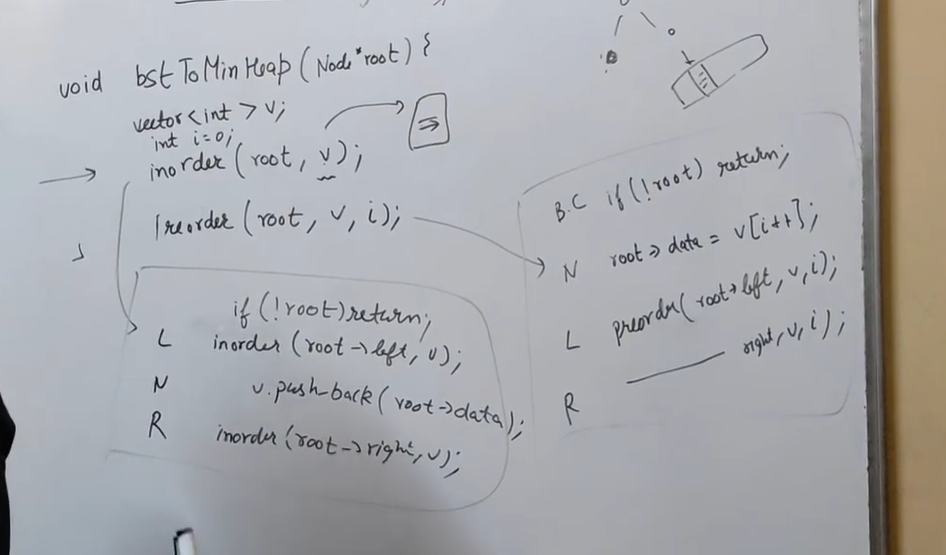 void bstToMinHeap(Node*root){
vector<int> v;
int i=0;
inorder(root, v);
preorder(root, v, i);
if(!root)return;
L inorder(root->left, v);
N v.push-back(root->data);
R inorder(root->right, v);
B.C if(!root) return;
N root->data = v[i++];
L preorder(root->left, v, i);
R ——— right, v, i);